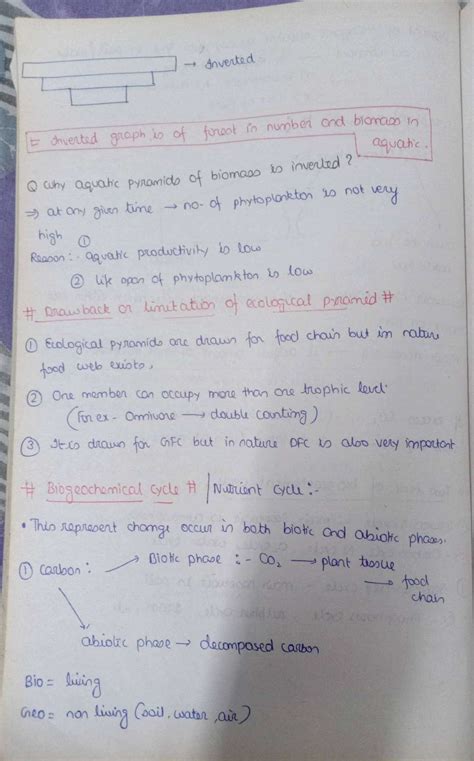 → Inverted
= Inverted graph is of forest in number and biomass in
aquatic.
Q Why aquatic pyramids of biomass is inverted?
⇒ at any given time → no- of phytoplankton is not very
high
Reason:- ① aquatic productivity is low
② life span of phytoplankton is low
# Drawback or limitation of ecological pyramid #
① Ecological pyramids are drawn for food chain but in nature
food web exists,
② One member can occupy more than one trophic level.
(for ex- Omnivore → double counting)
③ It is drawn for GFC but in nature DFC is also very important
# Biogeochemical Cycle # / Nutrient Cycle:-
• This represent change occur in both biotic and abiotic phases.
① Carbon: → Biotic phase :- CO₂ → plant tissue
→ food
chain
abiotic phase → decomposed carbon
Bio = living
Geo = non living (soil, water, air)